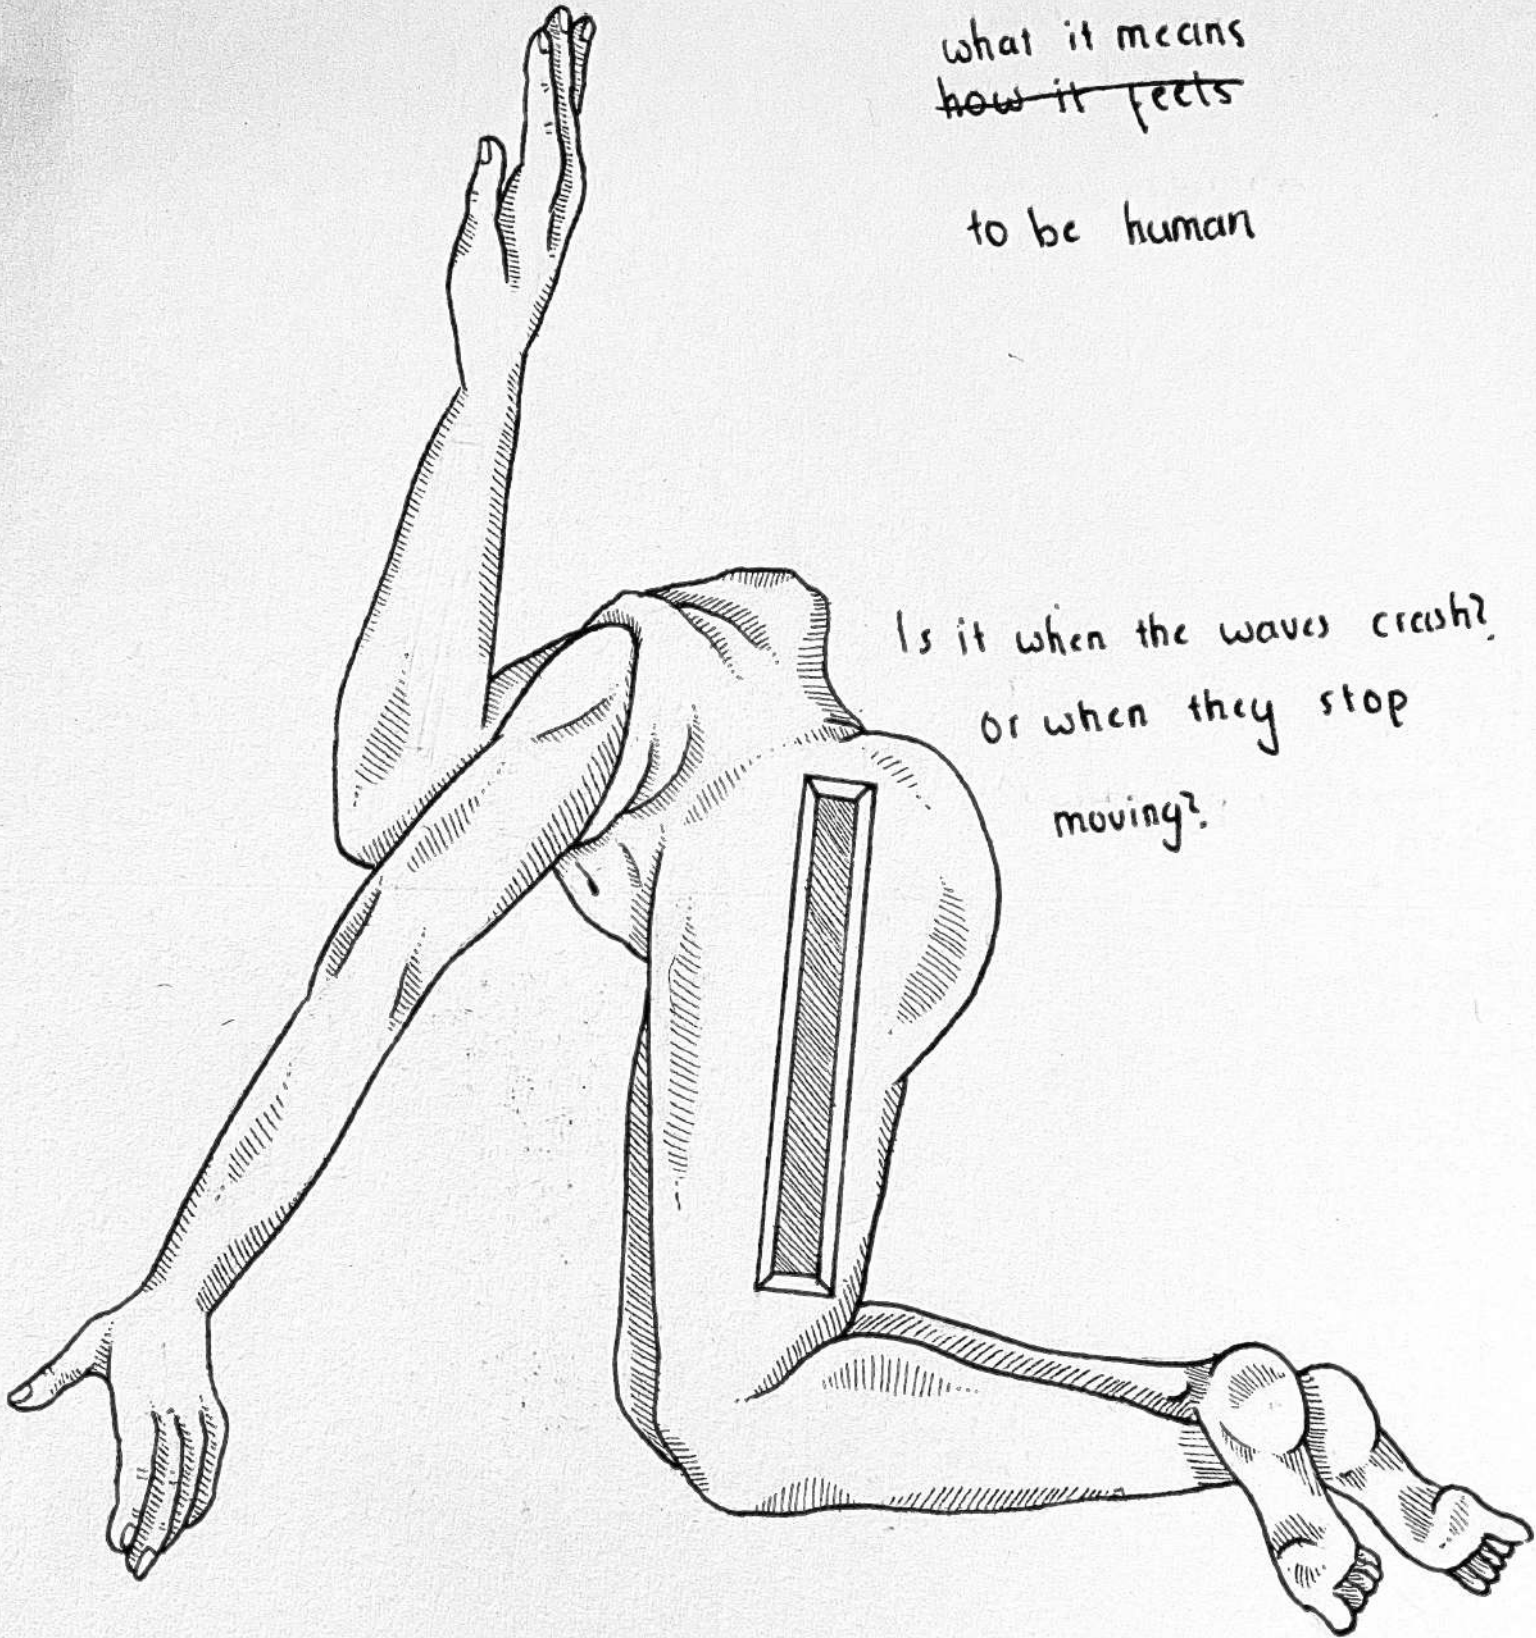 what it means
how it feels
to be human
Is it when the waves crash?
or when they stop
moving?